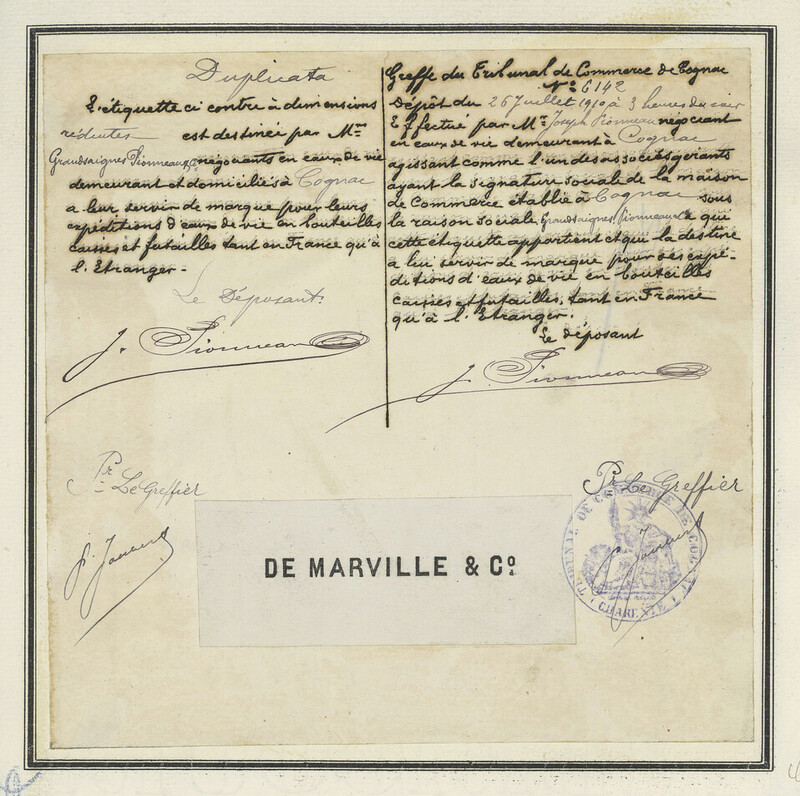 Duplicata
L'étiquette ci contre à dimensions
réduites est destinée par Mrs
Grandsaignes, Pionneau & Co négociants en eaux de vie
demeurant et domiciliés à Cognac
a leur servir de marque pour leurs
expéditions d'eaux de vie en bouteilles
caisses et futailles tant en France qu'à
l'Etranger -
Le Déposant.
J. Pionneau
Greffe du Tribunal de Commerce de Cognac
No 6142
Dépôt du 26 Juillet 1910 à 3 heures du soir
Effectué par Mr Joseph Pionneau négociant
en eaux de vie demeurant à Cognac
agissant comme l'un des associés gérants
ayant la signature sociale de la maison
de Commerce établie à Cognac sous
la raison sociale Grandsaignes, Pionneau & Co qui
cette étiquette appartient et qui la destine
a lui servir de marque pour ses expé-
ditions d'eaux de vie en bouteilles
caisses et futailles, tant en France
qu'à l'Etranger.
Le déposant
J. Pionneau
Pr Le Greffier
Pr Le Greffier
DE MARVILLE & Co
TRIBUNAL DE COMMERCE DE COGNAC
(CHARENTE)